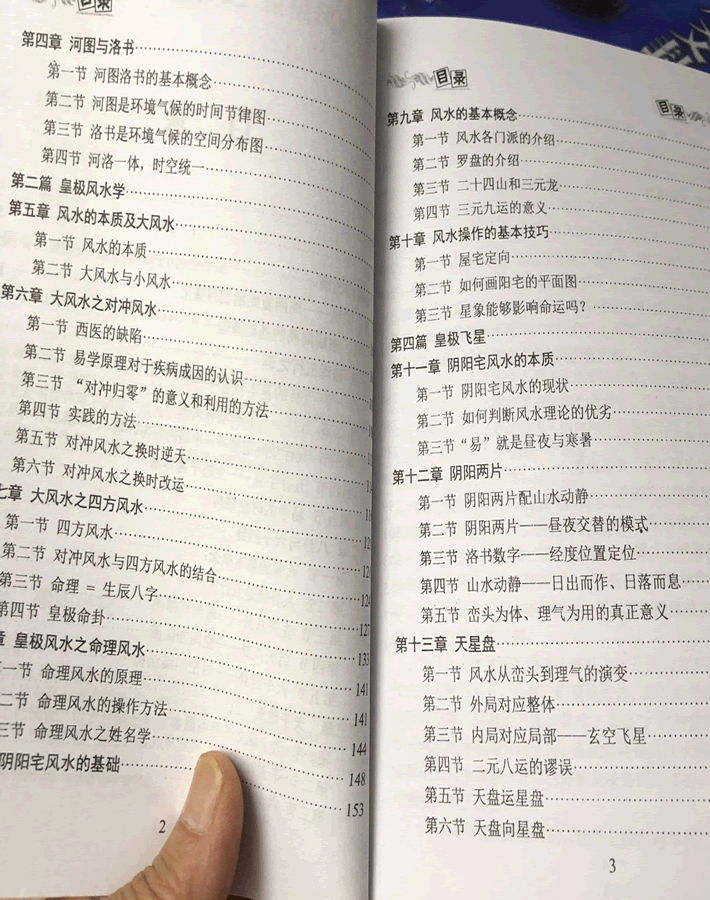 目录
第四章 河图与洛书
第一节 河图洛书的基本概念
第二节 河图是环境气候的时间节律图
第三节 洛书是环境气候的空间分布图
第四节 河洛一体，时空统一
第二篇 皇极风水学
第五章 风水的本质及大风水
第一节 风水的本质
第二节 大风水与小风水
第六章 大风水之对冲风水
第一节 西医的缺陷
第二节 易学原理对于疾病成因的认识
第三节 “对冲归零”的意义和利用的方法
第四节 实践的方法
第五节 对冲风水之换时逆天
第六节 对冲风水之换时改运
七章 大风水之四方风水
第一节 四方风水
第二节 对冲风水与四方风水的结合
第三节 命理 = 生辰八字 124
第四节 皇极命卦 127
章 皇极风水之命理风水 133
一节 命理风水的原理 141
二节 命理风水的操作方法 141
三节 命理风水之姓名学 144
阴阳宅风水的基础 148
153
2
目录
目录
第九章 风水的基本概念
第一节 风水各门派的介绍
第二节 罗盘的介绍
第三节 二十四山和三元龙
第四节 三元九运的意义
第十章 风水操作的基本技巧
第一节 屋宅定向
第二节 如何画阳宅的平面图
第三节 星象能够影响命运吗？
第四篇 皇极飞星
第十一章 阴阳宅风水的本质
第一节 阴阳宅风水的现状
第二节 如何判断风水理论的优劣
第三节“易”就是昼夜与寒暑
第十二章 阴阳两片
第一节 阴阳两片配山水动静
第二节 阴阳两片——昼夜交替的模式
第三节 洛书数字——经度位置定位
第四节 山水动静——日出而作、日落而息
第五节 峦头为体、理气为用的真正意义
第十三章 天星盘
第一节 风水从峦头到理气的演变
第二节 外局对应整体
第三节 内局对应局部——玄空飞星
第四节 二元八运的谬误
第五节 天盘运星盘
第六节 天盘向星盘
3